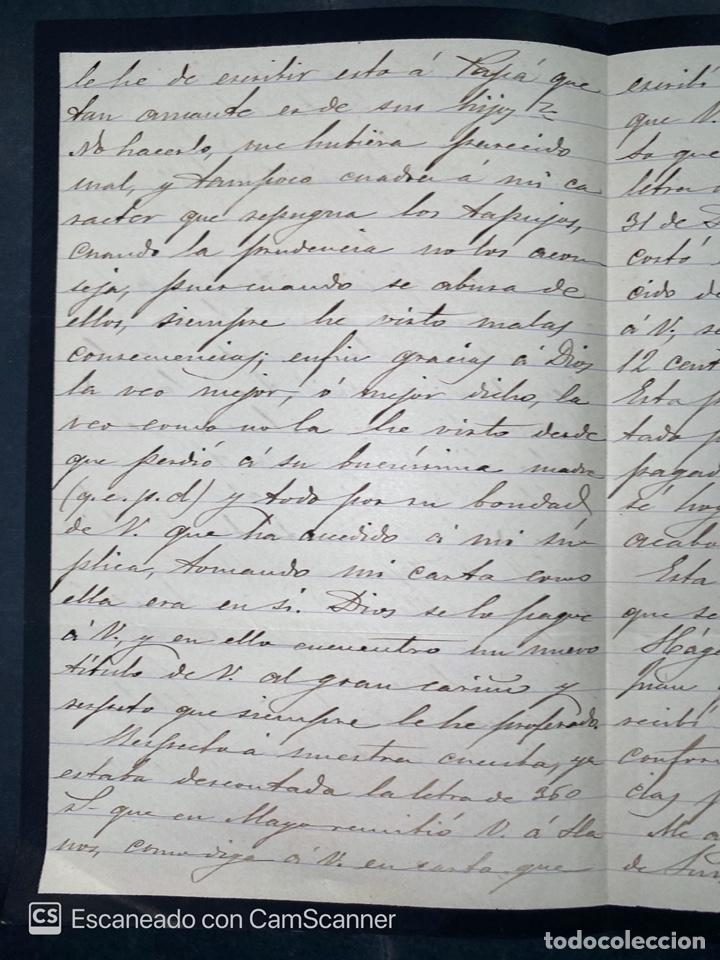 le he de escribir esto á Papá que
tan amante es de sus hijos?
No hacerlo, me hubiera parecido
mal, y tampoco cuadra á mi ca
racter que repugna los tapujos,
cuando la prudencia no los acon
seja, pues cuando se abusa de
ellos, siempre he visto malas
consecuencias; en fin gracias á Dios
la veo mejor, ó mejor dicho, la
veo como no la he visto desde
que perdió á su buenísima madre
(q.e.p.d) y todo por su bondad
de V. que ha accedido á mi sú
plica, tomando mi carta como
ella era en si. Dios se lo pague
á V, y en ello encuentro un nuevo
título de V. al gran cariño y
respeto que siempre le he profesado.
Respecto á nuestra cuenta, ya
estaba descontada la letra de 360
que en Mayo remitió V. á Lla
nos, como dige á V. en carta que
escribí
que V.
Lo que
letra
31 de
costó
cido de
á V, se
12 cent
Esta
tada
pagad
Sé
acaba
Esta
que se
Hága
recibí
confor
cias
Me a
de
CS Escaneado con CamScanner
todocoleccion